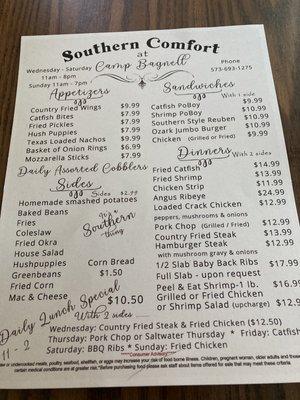 Southern Comfort
at
Camp Bagnell
Wednesday - Saturday
11am - 8pm
Sunday 11am - 7pm
Phone
573-693-1275
Appetizers
Country Fried Wings $9.99
Catfish Bites $7.99
Fried Pickles $7.99
Hush Puppies $7.99
Texas Loaded Nachos $9.99
Basket of Onion Rings $6.99
Mozzarella Sticks $7.99
Daily Assorted Cobblers
Sides
Sides $2.99
Homemade smashed potatoes
Baked Beans
Fries
Coleslaw
Fried Okra
House Salad
Hushpuppies
Greenbeans
Fried Corn
Mac & Cheese
It's a
Southern
thing
Corn Bread
$1.50
Sandwiches
With 1 side
Catfish PoBoy $9.99
Shrimp PoBoy $10.99
Southern Style Reuben $10.99
Ozark Jumbo Burger $10.99
Chicken (Grilled or Fried) $9.99
Dinners
With 2 sides
Fried Catfish $14.99
Fried Shrimp $13.99
Chicken Strip $11.99
Angus Ribeye $24.99
Loaded Crack Chicken $12.99
peppers, mushrooms & onions
Pork Chop (Grilled / Fried) $12.99
Country Fried Steak $13.99
Hamburger Steak $12.99
with mushroom gravy & onions
1/2 Slab Baby Back Ribs $17.99
Full Slab - upon request
Peel & Eat Shrimp-1 lb. $16.99
Grilled or Fried Chicken $12.9
or Shrimp Salad (upcharge)
Daily Lunch Special
11 - 2
$10.50
With 2 sides
Wednesday: Country Fried Steak & Fried Chicken ($12.50)
Thursday: Pork Chop or Saltwater Thursday * Friday: Catfish
Saturday: BBQ Ribs * Sunday: Fried Chicken
Consumer Advisory
or undercooked meats, poultry, seafood, shellfish, or eggs may increase your risk of food borne illness. Children, pregnant women, older adults and those
certain medical conditions are at greater risk. *Before purchasing food please ask staff about items offered for sale that may meet these criteria.